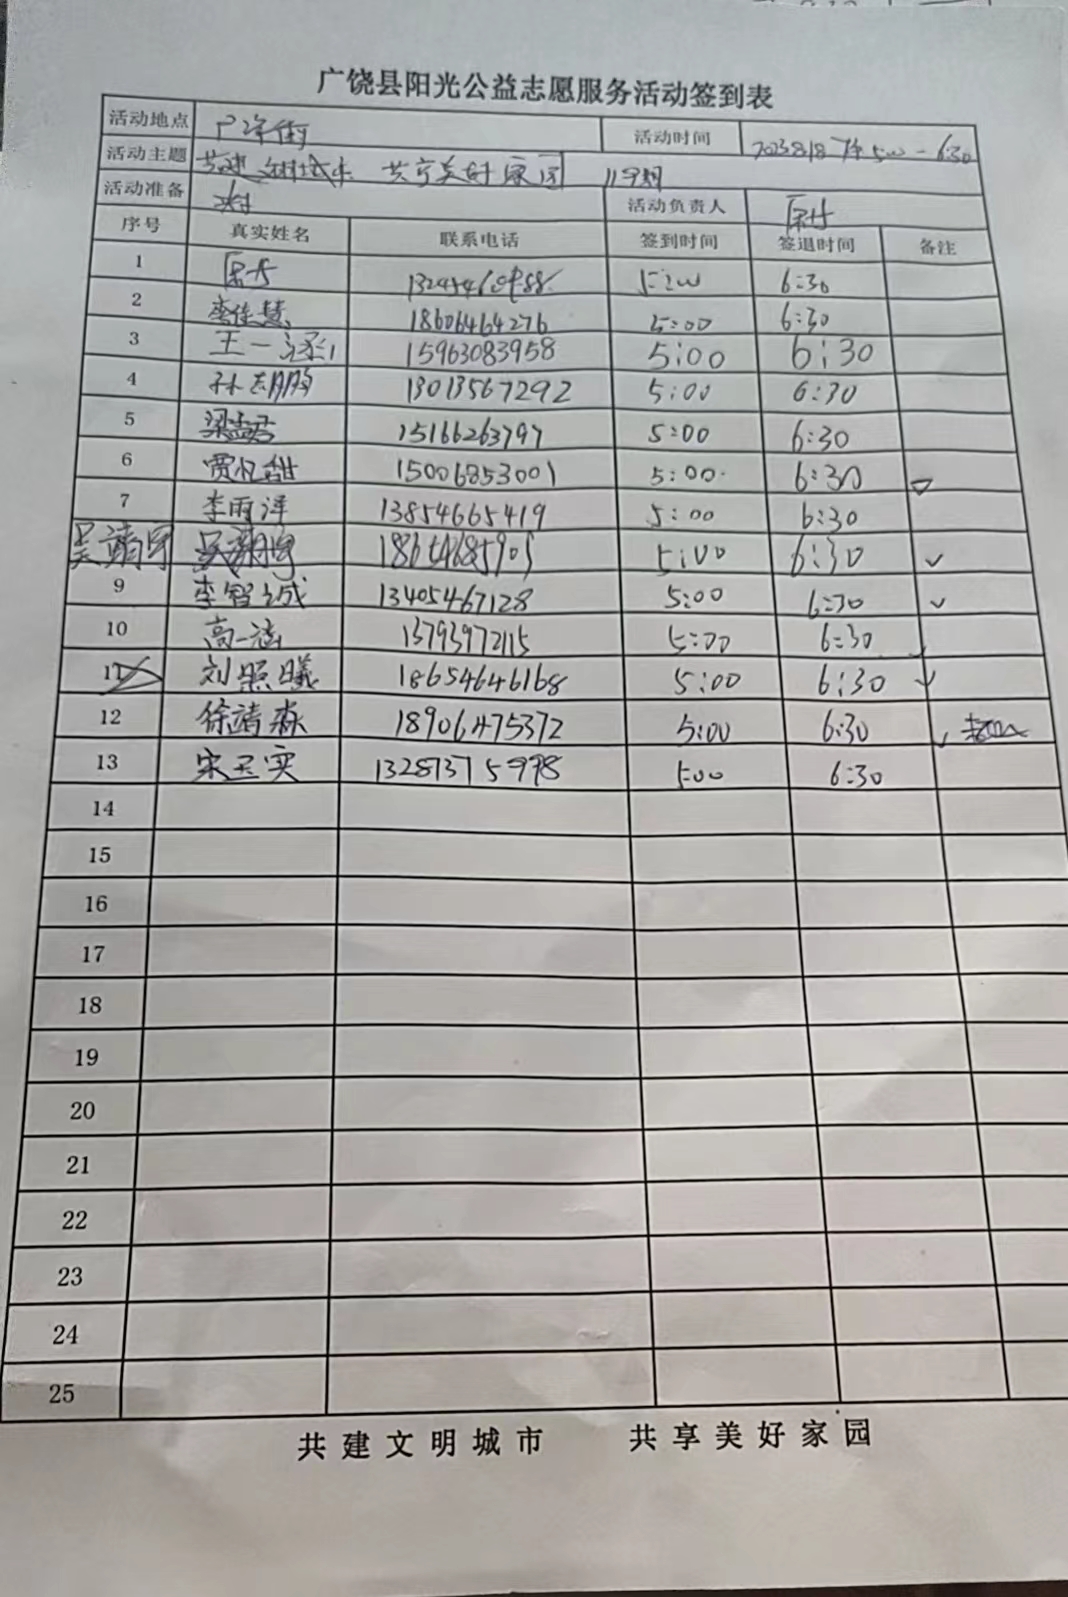 广饶县阳光公益志愿服务活动签到表
活动地点 活动时间 2023 8/18 下午 5:00-6:30
活动主题 共建文明城市 共享美好家园 119期
活动准备 活动负责人
序号 真实姓名 联系电话 签到时间 签退时间 备注
1 5:00 6:30
2 李佳慧 18606464276 5:00 6:30
3 王一涵 15963083958 5:00 6:30
4 孙志鹏 13013567292 5:00 6:30
5 梁孟君 15166263797 5:00 6:30
6 贾忆甜 15006853001 5:00 6:30
7 李雨洋 13854665419 5:00 6:30
吴靖宇 18654685905 5:00 6:30 ✓
9 李智诚 13405467128 5:00 6:30 ✓
10 高一涵 13793972115 5:00 6:30 ✓
11 刘照曦 18654646168 5:00 6:30 ✓
12 徐靖淼 18906475372 5:00 6:30
13 宋玉实 13287375978 5:00 6:30
14
15
16
17
18
19
20
21
22
23
24
25
共建文明城市 共享美好家园